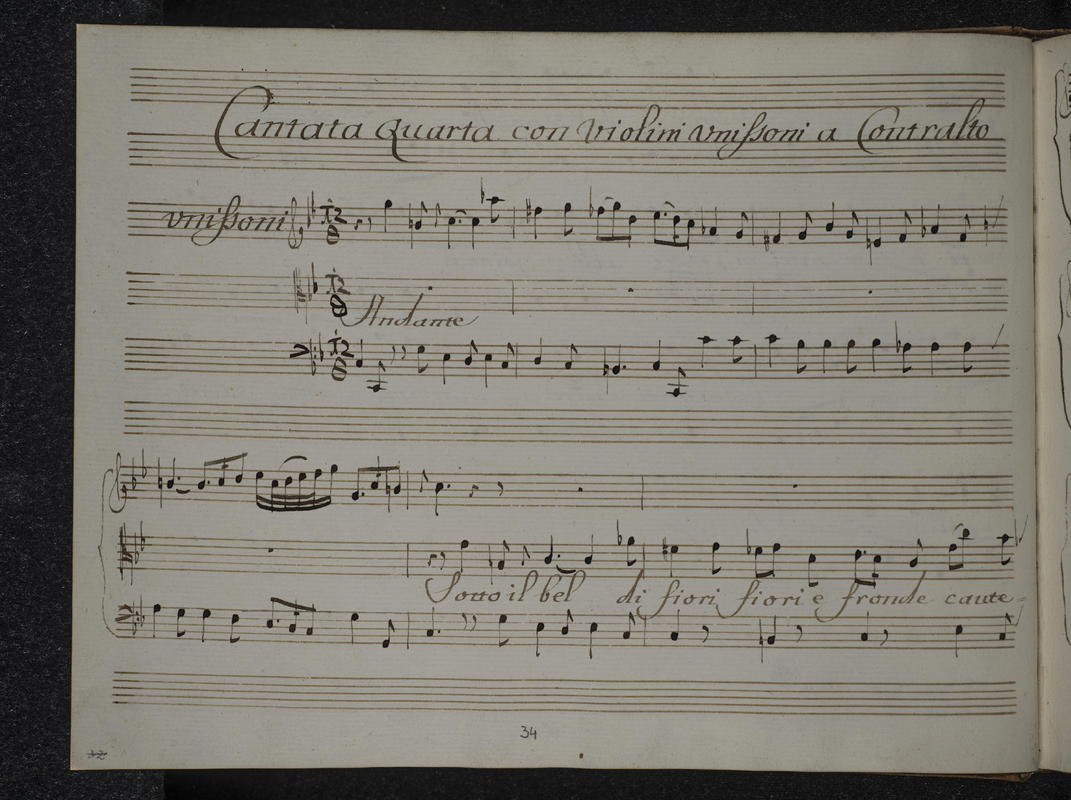 Cantata Quarta con Violini Vnissoni a Contralto
Vnissoni
12
8
12
8
Andante
12
8
Sotto il bel di fiori fiori e fronde caute=
34